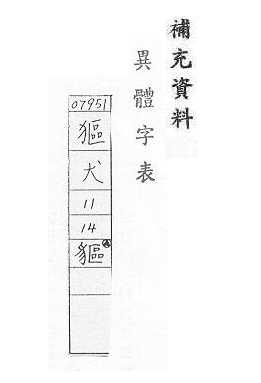 補充資料
異體字表
07951
犬
11
14
貙